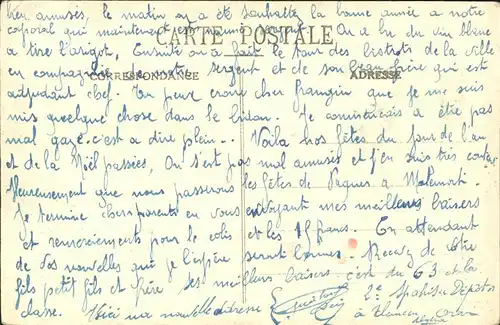 bien amusés, le matin on a été souhaité la bonne année a notre
caporal qui maintenant est On a bu du vin blanc
CARTE POSTALE
a tire l'arigot, Ensuite on a fait le tour des bistrots de la ville
en compagnie de notre sergent et de son beau frère qui est
CORRESPONDANCE ADRESSE
adjudant chef. Tu peux croire cher frangin que je me suis
mis quelque chose dans le bidon. Je commencais a être pas
mal gazé c'est a dire plein. Voila nos fêtes du jour de l'an
et de la Noël passées, On s'est pas mal amusés et j'en suis très content
Heureusement que nous passerons les fêtes de Pâques a
Je termine chers parents en vous envoyant mes meilleurs baisers
et remerciements pour le colis et les 18 francs. En attendant
de vos nouvelles que j'espère seront bonnes. Recevez de votre
fils petit fils et frère ses meilleurs baisers. c'est du 63 et la
classe. Voici ma nouvelle adresse 2e Spahis
a Tlemcen Oran